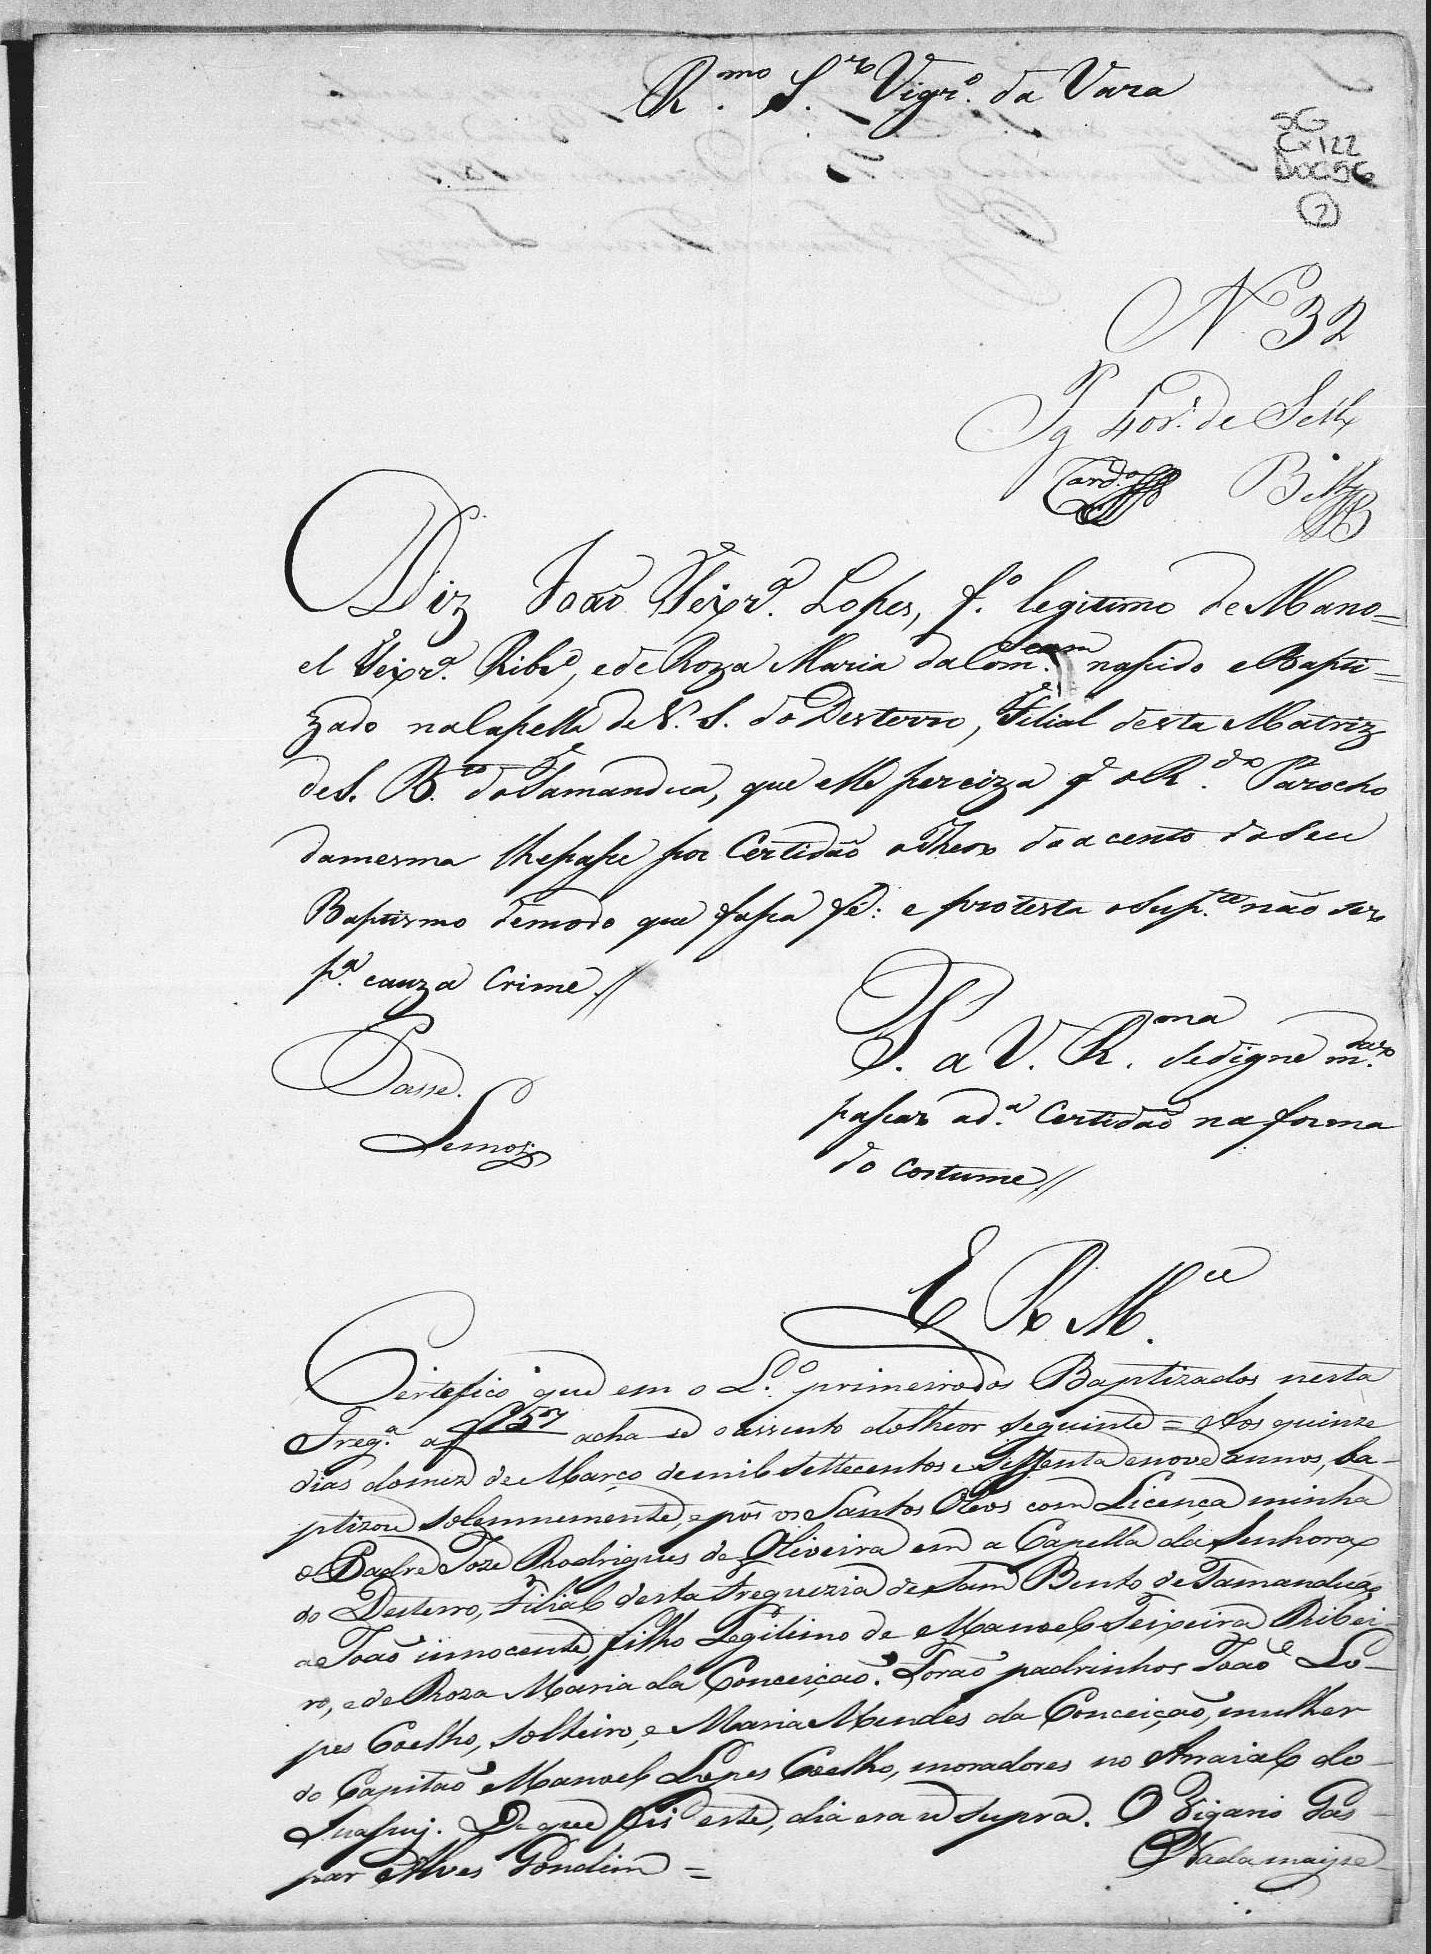 R.mo S.r Vigr.o da Vara
SG
Cx122
Doc56
2
N 32
Pg 40 r.s de Sello
Diz João Teixr.a Lopes, f.o legitimo de Mano=
el Teixr.a Ribr.o, e de Roza Maria da Com.cam nascido e Bapti=
zado na Capella de N. S. do Desterro, Filial desta Matriz
de S. B.to do Tamandua, que elle perciza q̃ o R.do Parocho
da mesma lhe passe por Certidão o Theor do acento do seu
Baptismo demodo que fassa fé: e protesta o Sup.te não ser
p.a cauza Crime //
Passe.
Lemos
P. a V. R.ma se digne m.dar
passar a d.a Certidão na forma
do costume //
E R M.ce
Certefico que em o L.o primeiro dos Baptizados nesta
Freg.a a f 157 acha se o assento do theor seguinte = Aos quinze
dias do mez de Março de mil settecentos e sessenta e nove annos, ba-
ptizou solemnemente, e pôs os Santos Oleos com Licença minha
o Padre Joze Rodrigues de Oliveira em a Capella da Senhora
do Desterro, Filial desta Freguezia de Sam Bento do Tamanduá,
a João innocente filho Legitimo de Manoel Teixeira Ribei-
ro, e de Roza Maria da Conceição. Forão padrinhos João Lo-
pes Coelho, solteiro, e Maria Mendes da Conceição, mulher
do Capitaõ Manoel Lopes Coelho, moradores no Arraial do
De que fis este, dia era ut supra. O Vigario Gas-
par Alves Gondim =
Nada mais se